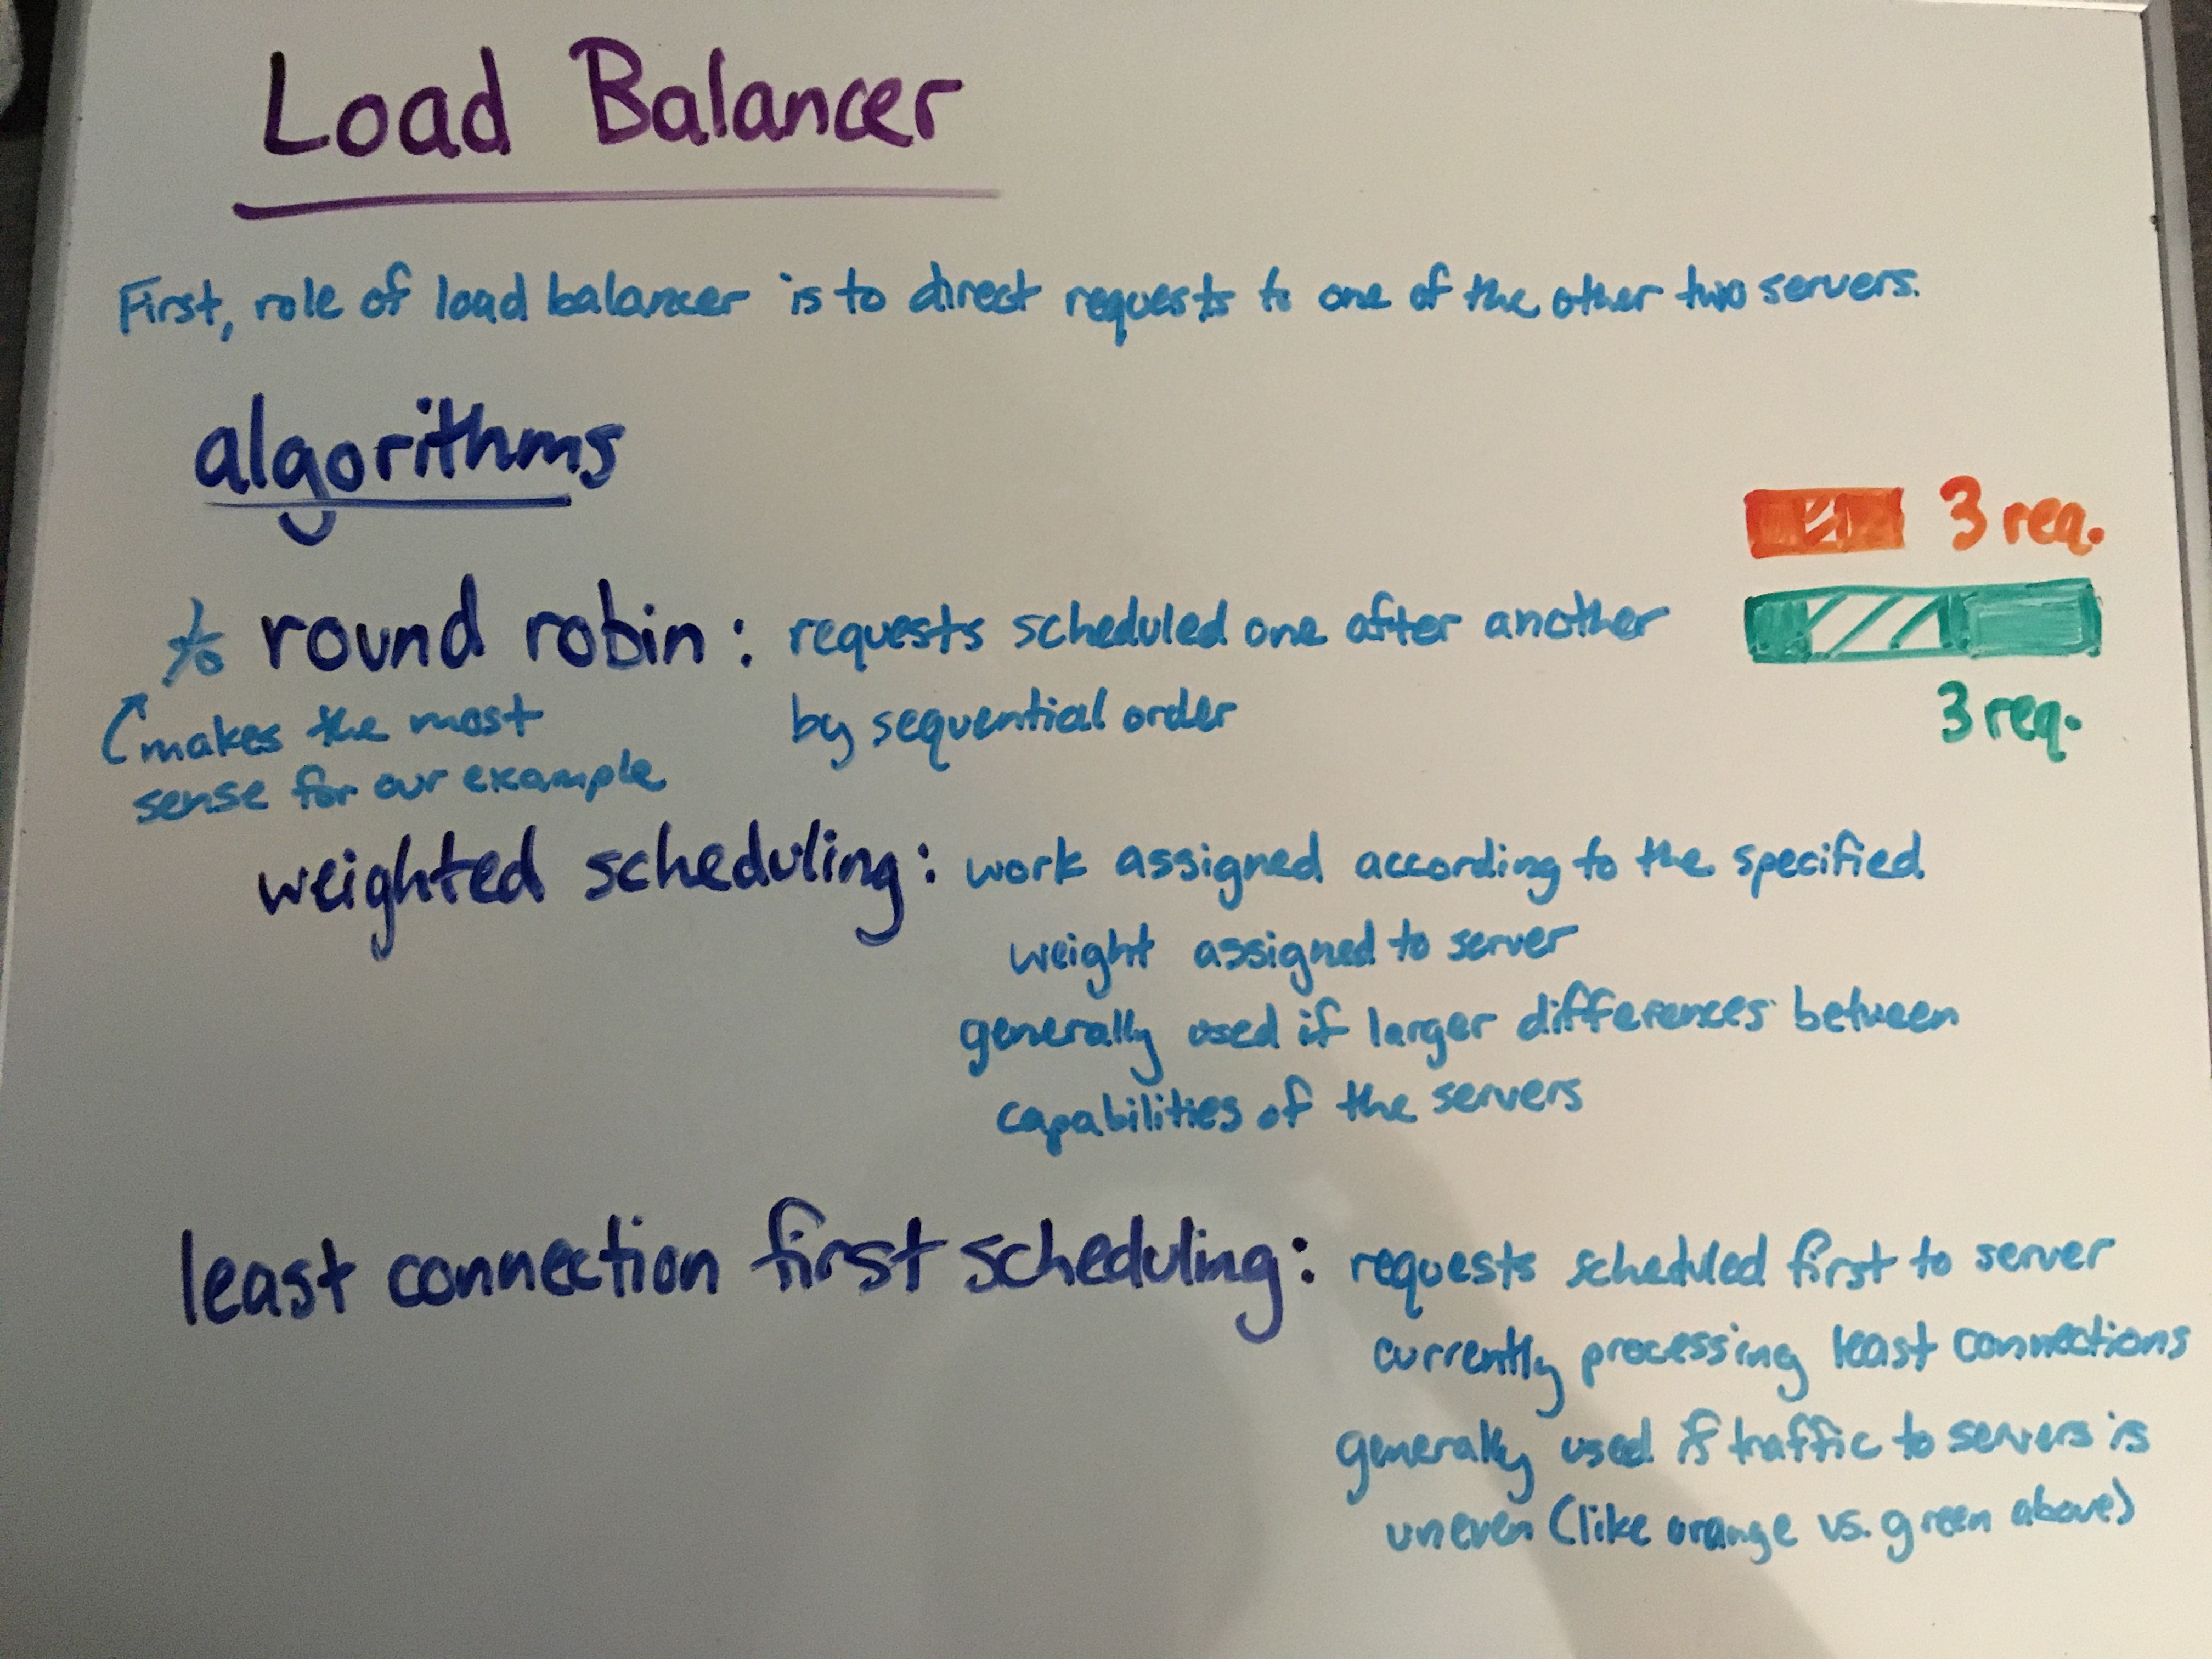 Load Balancer
First, role of load balancer is to direct requests to one of the other two servers.
algorithms
round robin: requests scheduled one after another
by sequential order
makes the most
sense for our example
3 req.
3 req.
weighted scheduling: work assigned according to the specified
weight assigned to server
generally used if larger differences between
capabilities of the servers
least connection first scheduling: requests scheduled first to server
currently processing least connections
generally used if traffic to servers is
uneven (like orange vs. green above)